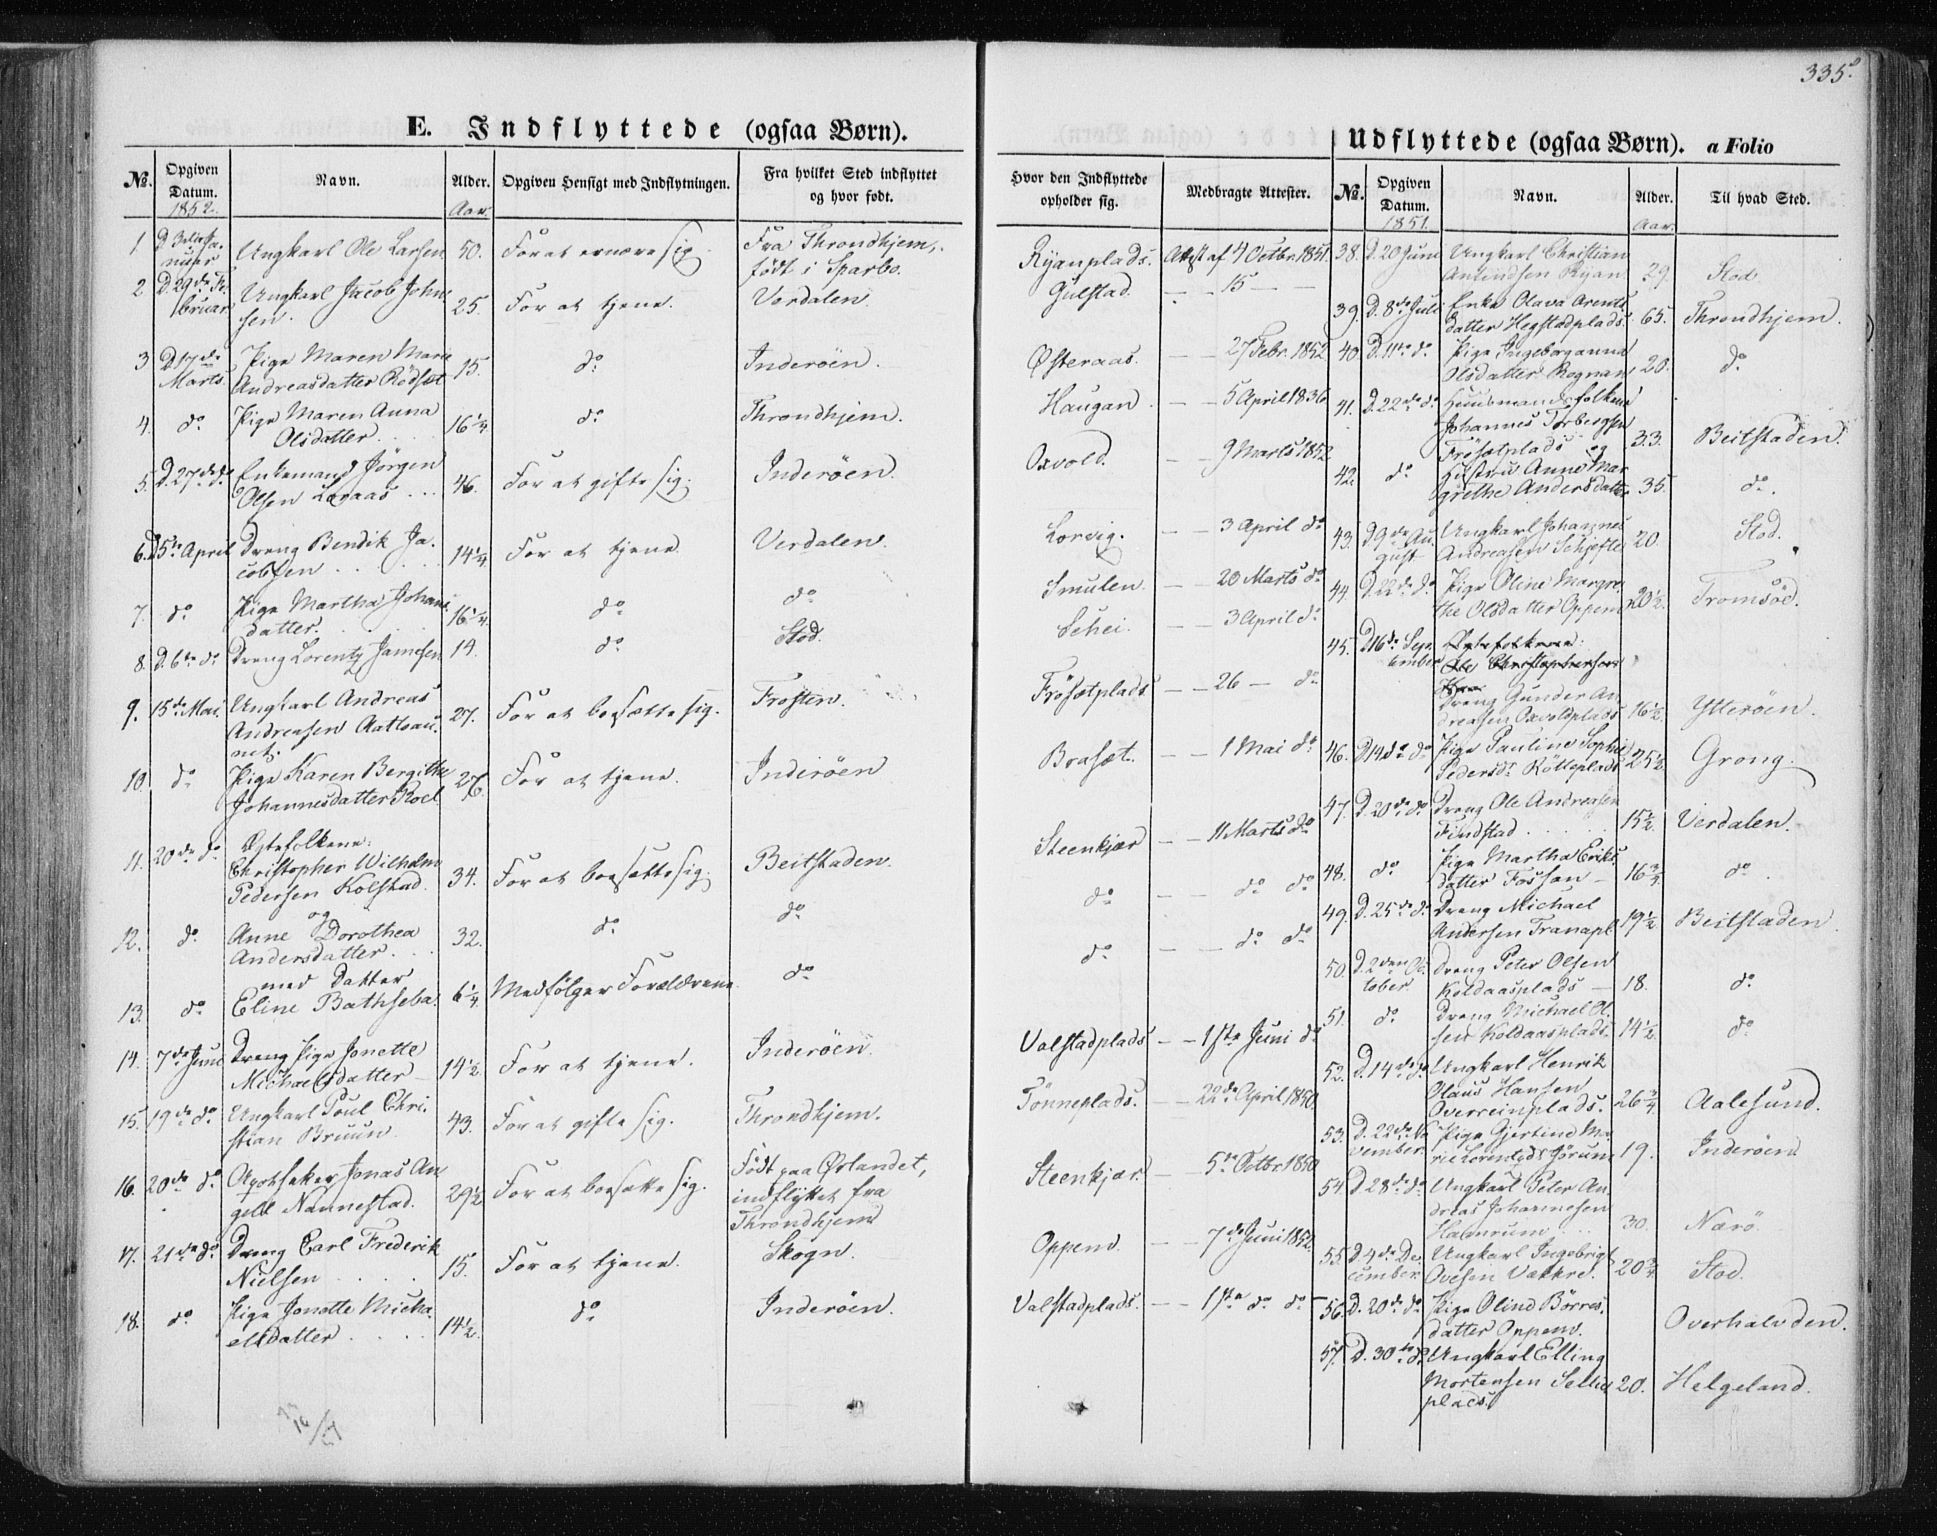 335.
E. Indflyttede (ogsaa Børn).
№.
Opgiven Datum.
1852.
Navn.
Alder.
Aar.
Opgiven Hensigt med Indflytningen.
Fra hvilket Sted indflyttet
og hvor født.
Hvor den Indflyttede
opholder sig.
Medbragte Attester.
1 Ungkarl Ole Larsen 50. For at ernære sig Fra Throndhjem, Ryanplads. Attest af 4 Octbr. 1851.
født i Sparbo.
2 D. 29de Fe- Ungkarl Jacob John- 25. For at tjene. Verdalen Gulstad. — 15 — —
bruar sen.
3 D. 17de Pige Maren Marie 15. do Inderöen. Østeraas. — — 27 Febr. 1852
Marts Andreasdatter Rödset
4. do Pige Maren Anna 16¼ do Throndhjem. Haugan — — 5 April 1836
Olsdatter
5. D. 27de do Enkemand Jörgen 46. For at gifte sig. Inderöen. Oxvold. — — 9 Marts 1852
Olsen
6. D 5te April Dreng Bendik Ja- 14¼ For at tjene Verdalen Lorvig. — — 3 April do
cobsen
7. do Pige Martha Johans- 16¼ do do Smulen — — 20 Marts do
datter.
8. D. 6te do Dreng Lorentz Jamesen 14. do Stod. Schei. — — 3 April do
9. 15de Mai. Ungkarl Andreas 27. For at bosætte sig. Frosten. Frösetplads — — 26 — do
Andreasen
10. do Pige Karen Bergitha 26 For at tjene. Inderöen Brasæt. — — 1 Mai do
Johannesdatter Roel
11. 20de do Ægtefolkene:
Christopher Wilhelm 34. For at bosætte sig. Beitstaden. Steenkjær — — 11 Marts do
Pedersen Kolstad.
og
12. do Anne Dorothea 32. do do do — — do do
Andersdatter
med Datter
13. do Eline Bathseba. 6¼ Medfölger Forældrene do do — — do do
14. 7de Juni Dreng Pige Jonette 14½ For at tjene. Inderöen. Valstadplads — — 1ste Juni do
Michaelsdatter
15. 19de do Ungkarl Poul Chri- 43. For at gifte sig. Throndhjem. Tönneplads. — — 22de April 1850
stian Bruun
16. 20de do Apotheker Jonas An 29½ For at bosætte sig. Födt paa Ørlandet, Steenkjær. — 5te Octbr. 1850
gell Nannestad. indflyttet fra
Throndhjem
17. 21de do Dreng Carl Frederik 15. For at tjene. Skogn. Oppem — — 7de Juni 1852
Nielsen
18. do Pige Jonette Micha- 14½ do Inderöen. Valstadplads. — — 1ste do do
elsdatter
Udflyttede (ogsaa Børn). a Folio
№.
Opgiven Datum.
1851.
Navn.
Alder.
Aar.
Til hvad Sted.
38. D. 20 Juni Ungkarl Christian 29 Stod
Amundsen Ryan
39. D. 8de Juli Enke Olava Arents- 65. Throndhjem.
datter Hegstadplads.
40 D. 11te do Pige Ingeborganna 20. do
Olsdatter Rognan
41. D. 22de do Huusmandsfolkene
Johannes Torbergsen 33. Beitstaden.
Frösetplads og
42. do Hustru Anne Mar- 35. do.
grethe Andersdatter
43. D. 9de Au- Ungkarl Johannes 20. Stod.
gust Andreasen Schjefte
44 D. 22de do Pige Oline Margre- 20½ Tromsöe.
the Olsdatter Oppem
45. D 16de Sep- Ægtefolkene:
tember Ole Christophersen
Dreng Gunder An- 16½ Ytteröen.
dreasen Oxvoldplads
46. D 14de do Pige Pauline Sophie 25½ Grong.
Pedersdr
47. D. 20de do Dreng Ole Andreasen 15½ Verdalen.
Findstad
48. do Pige Martha Eriks- 16¾ do.
datter Fossan
49. D. 25de do Dreng Michael 19½ Beitstaden.
Andersen Tranapl.
50. D. 2den Oc- Dreng Peter Olsen 18. do
tober. Koldaasplads
51. do Dreng Michael Ol- 14½ do
sen Koldaasplads.
52. D. 14de do Ungkarl Henrik
Olaus Hansen 26¾ Aalesund.
Overreinplads.
53. D. 22de No- Pige Gjertine Ma- 19. Inderöen
vember.
54. D 28de do Ungkarl Peter An-
dreas Johannesen 30. Nærö.
55. D 4de De- Ungkarl Ingebrigt 20¾ Stod.
cember. Ovesen Vækkre.
56. D. 20de do Pige Olind Börres- Overhalvden.
datter Oppem.
57. D. 30te do Ungkarl Elling
Mortensen Sellie 20. Helgeland.
plads.